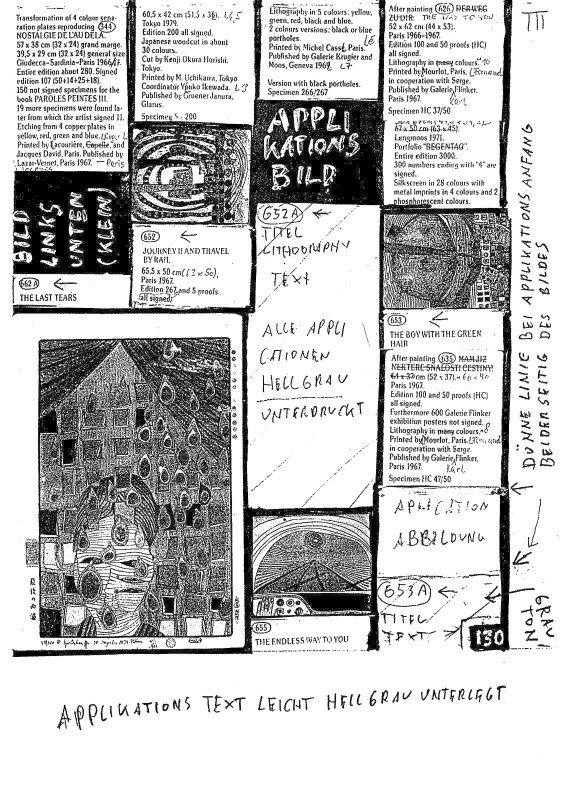 Transformation of 4 colour sepa-
ration plates reproducing 344
NOSTALGIE DE L'AU DELA.
57 x 38 cm (32 x 24) grand marge.
39,5 x 29 cm (32 x 24) general size
Giudecca-Sardinia-Paris 1966/67.
Entire edition about 280. Signed
edition 107 (50+14+25+18).
150 not signed specimens for the
book PAROLES PEINTES III.
19 more specimens were found la-
ter from which the artist signed 11.
Etching from 4 copper plates in
yellow, red, green and blue.
Printed by Lacourière, and
Jacques David, Paris. Published by
Lazar-Vernet, Paris 1967. Paris
BILD
LINKS
UNTEN
(KLEIN)
662 A
THE LAST TEARS
60,5 x 42 cm (51,5 x 36).
Edition 200 all signed.
Tokyo 1979.
Japanese woodcut in about
30 colours.
Cut by Kenji Okura Horishi,
Tokyo.
Printed by M. Uchikawa, Tokyo.
Coordinator Yosiko Ikewada.
Published by Gruener Janura,
Glarus.
200
652
JOURNEY II AND TRAVEL
BY RAIL
65,5 x 50 cm (73 x 50),
Paris 1967.
Edition 267 and 5 proofs
all signed
Lithography in 5 colours: yellow,
green, red, black and blue.
2 colours versions; black or blue
portholes.
Printed by Michel Cassé, Paris.
Published by Galerie Krugier and
Moos, Geneva 1969.
Version with black portholes.
Specimen 266/267
APPLI
KATIONS
BILD
652A
TITEL
LITHOGRAPHY
TEXT
ALLE APPLI
CATIONEN
HELLGRAU
UNTERDRUCKT
655
THE ENDLESS WAY TO YOU
After painting 626 DERWEG
ZU DIR. THE WAY TO YOU
52 x 62 cm (44 x 53).
Paris 1966-1967.
Edition 100 and 50 proofs (HC)
all signed.
Lithography in many colours.
Printed by Mourlot, Paris.
in cooperation with Serge.
Published by Galerie Flinker,
Paris 1967. Karl
Specimen HC 37/50
67 x 50 cm (63 x 45).
Lengmoos 1971.
Portfolio "REGENTAG".
Entire edition 3000.
300 numbers ending with "4" are
signed.
Silkscreen in 28 colours with
metal imprints in 4 colours and 2
phosphorescent colours.
653
THE BOY WITH THE GREEN
HAIR
After painting 635 MAMJIZ
NEKTERE SNALOSTI CESTINY.
64 x 33 cm (52 x 37).
Paris 1967.
Edition 100 and 50 proofs (HC)
all signed.
Furthermore 600 Galerie Flinker
exhibition posters not signed.
Lithography in many colours.
Printed by Mourlot, Paris.
in cooperation with Serge.
Published by Galerie Flinker,
Paris 1967. Karl
Specimen HC 47/50
APLICATION
ABBILDUNG
653A
TITEL
TEXT
130
III
DÜNNE LINIE BEI APPLIKATIONS ANFANG
BEIDERSEITIG DES BILDES
GRAU
TON
APPLIKATIONS TEXT LEICHT HELLGRAU UNTERLEGT